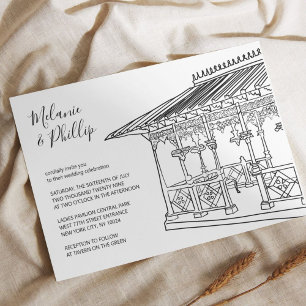 Melanie
& Phillip
cordially invite you
to their wedding celebration
SATURDAY, THE SIXTEENTH OF JULY
TWO THOUSAND TWENTY NINE
AT TWO O'CLOCK IN THE AFTERNOON
LADIES PAVILION CENTRAL PARK
WEST 77TH STREET ENTRANCE
NEW YORK CITY, NY 10024
RECEPTION TO FOLLOW
AT TAVERN ON THE GREEN